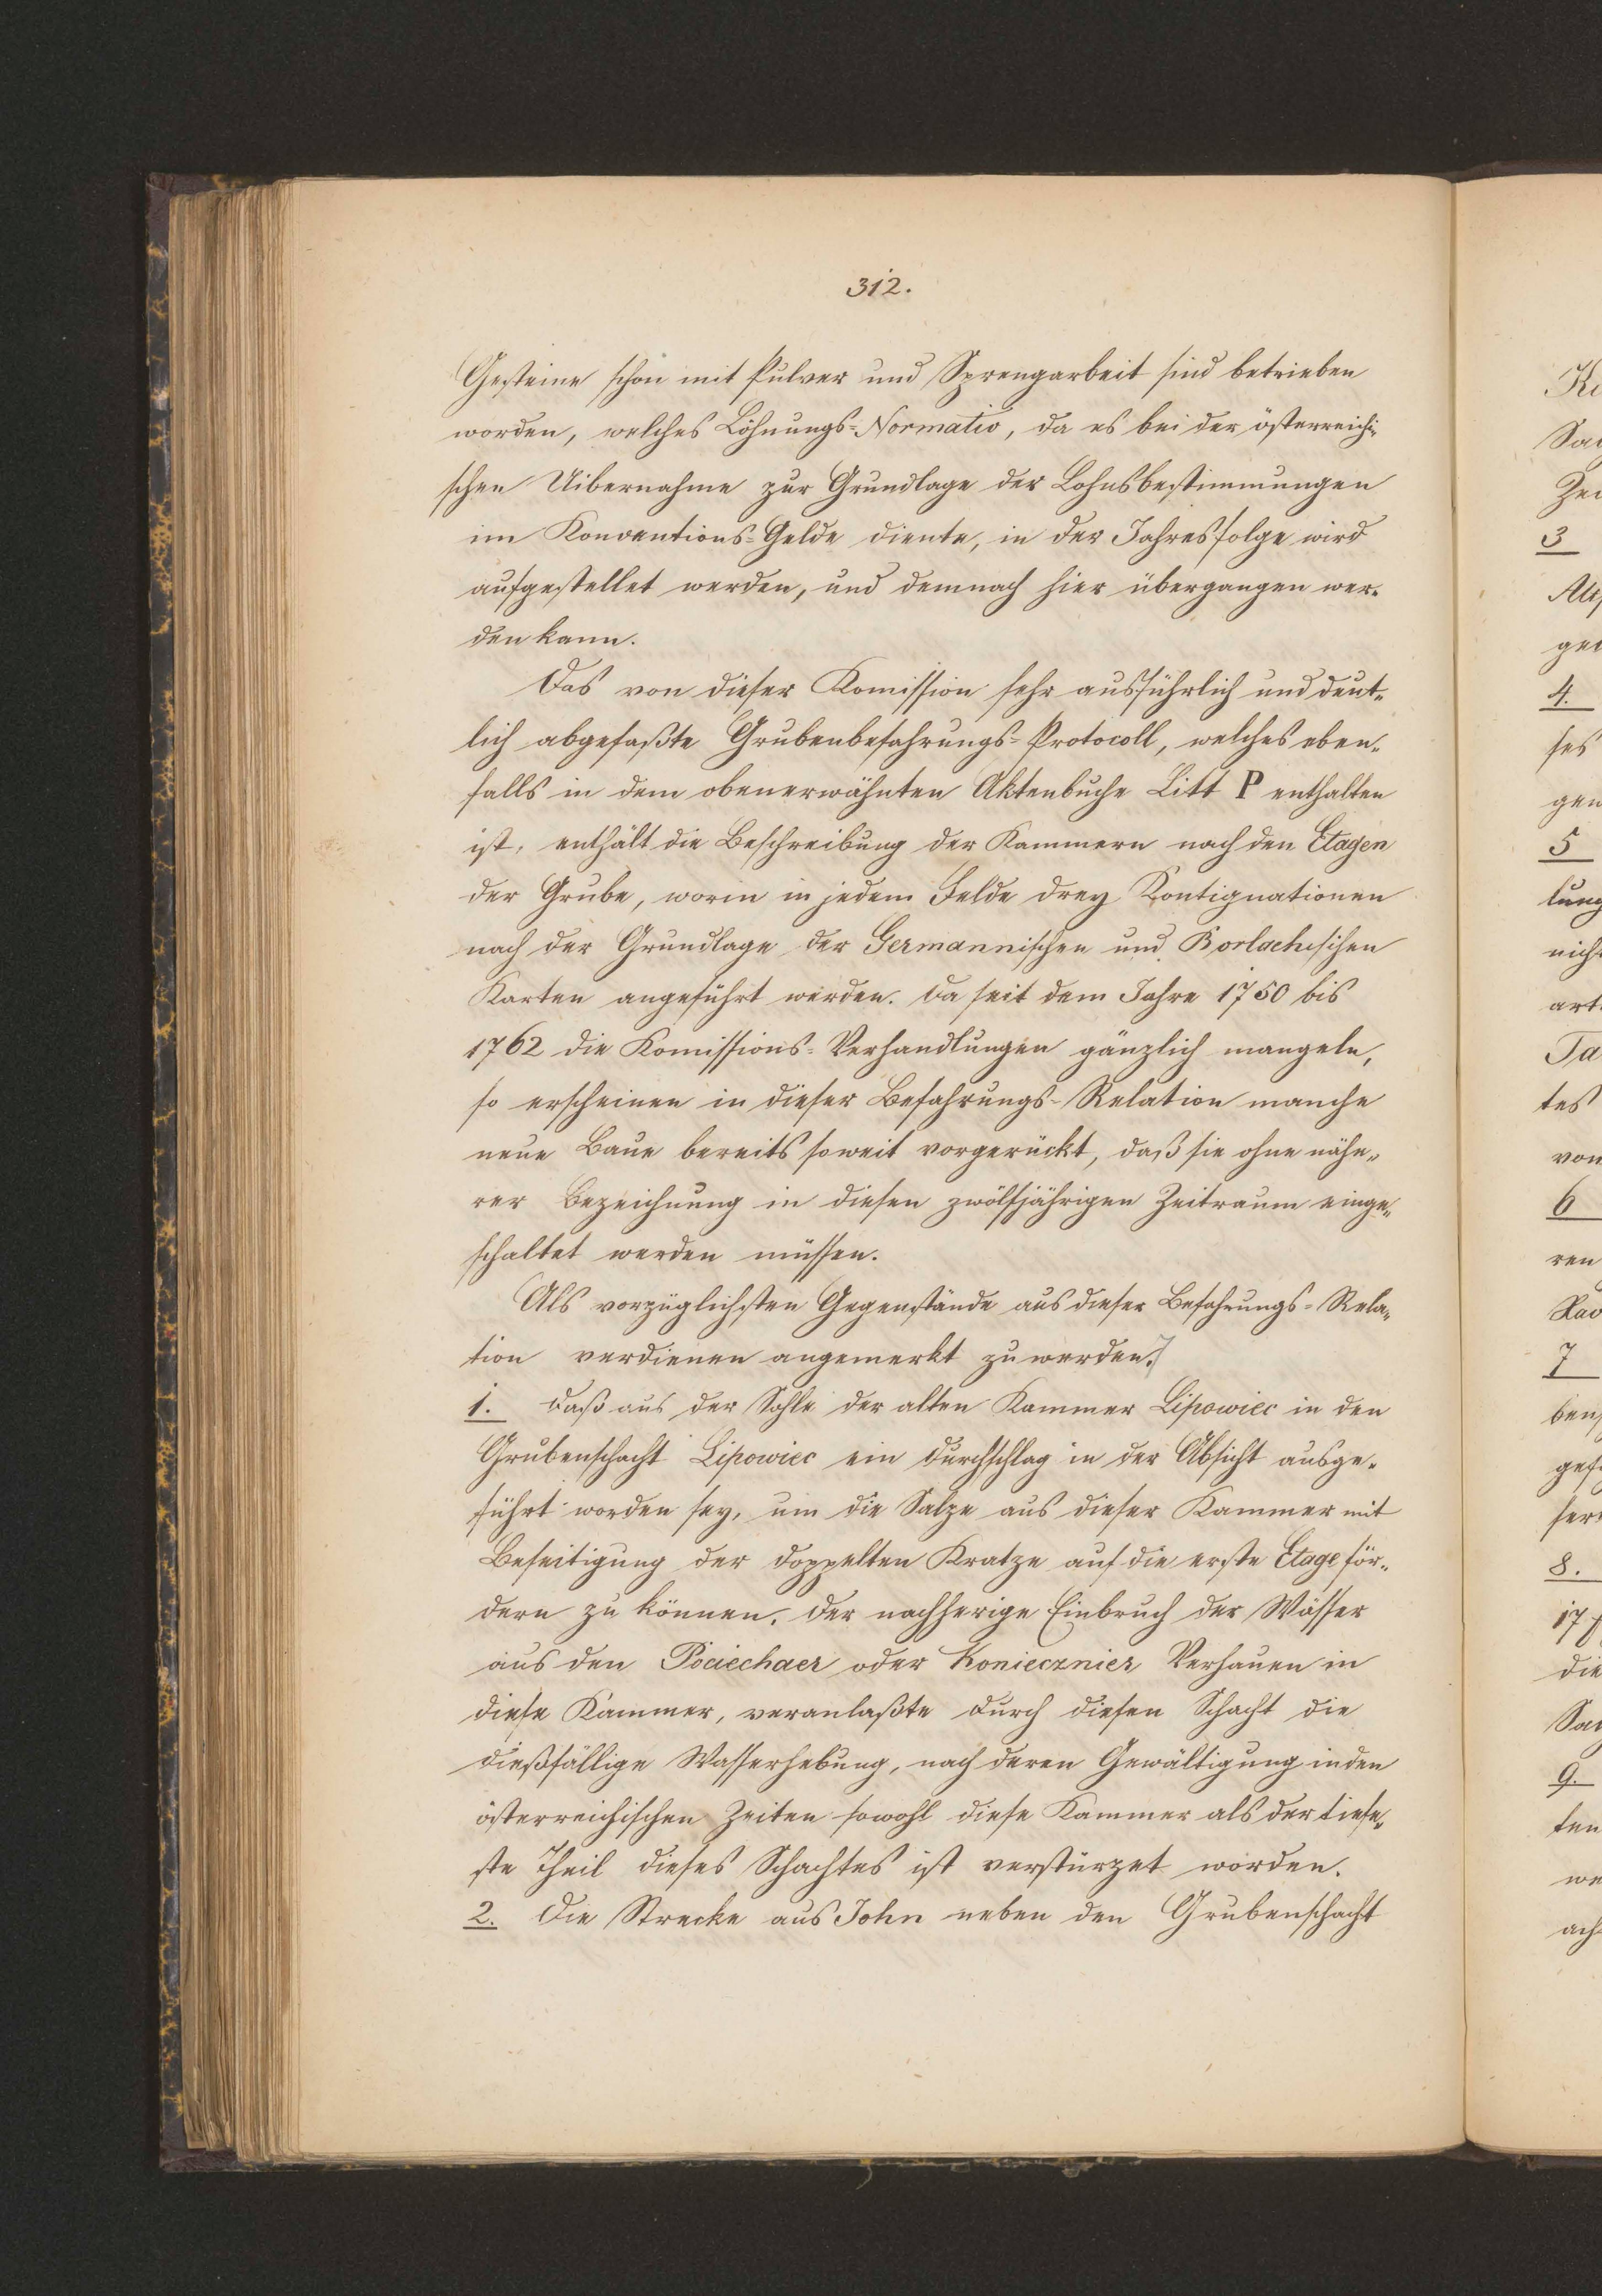 312.
Gesteine schon mit Pulver und Sprengarbeit sind betrieben
worden, welches Löhnungs-Normativ, da es bei der österreichi-
schen Uibernahme zur Grundlage der Lohnsbestimmungen
im Konventions-Gelde diente, in der Jahresfolge wird
aufgestellet werden, und demnach hier übergangen wer-
den kann.
Das von dieser Komission sehr ausführlich und deut-
lich abgefaßte Grubenbefahrungs-Protocoll, welches eben-
falls in dem obenerwähnten Aktenbuche Litt P enthalten
ist, enthält die Beschreibung der Kammern nach den Etagen
der Grube, worin in jedem Felde drey Kontignationen
nach der Grundlage der Germannischen und Borlachischen
Karten angeführt werden. Da seit dem Jahre 1750 bis
1762 die Komissions-Verhandlungen gänzlich mangeln,
so erscheinen in dieser Befahrungs-Relation manche
neue Baue bereits soweit vorgerückt, daß sie ohne nähe-
rer Bezeichnung in diesen zwölfjährigen Zeitraum einge-
schaltet werden müssen.
Als vorzüglichsten Gegenstände aus dieser Befahrungs-Rela-
tion verdienen angemerkt zu werden.
1. Daß aus der Sohle der alten Kammer Lipowiec in den
Grubenschacht Lipowiec ein Durchschlag in der Absicht ausge-
führt worden sey, um die Salze aus dieser Kammer mit
Beseitigung der doppelten Kratze auf die erste Etage för-
dern zu können. Der nachherige Einbruch der Wässer
aus den Pociechaer oder Koniecznier Verhauen in
diese Kammer, veranlaßte durch diesen Schacht die
dießfällige Wasserhebung, nach deren Gewältigung in den
österreichischen Zeiten sowohl diese Kammer als der tiefe-
ste Theil dieses Schachtes ist verstürzet worden.
2. Die Strecke aus John neben den Grubenschacht
3
4.
5
6
7
8.
9.